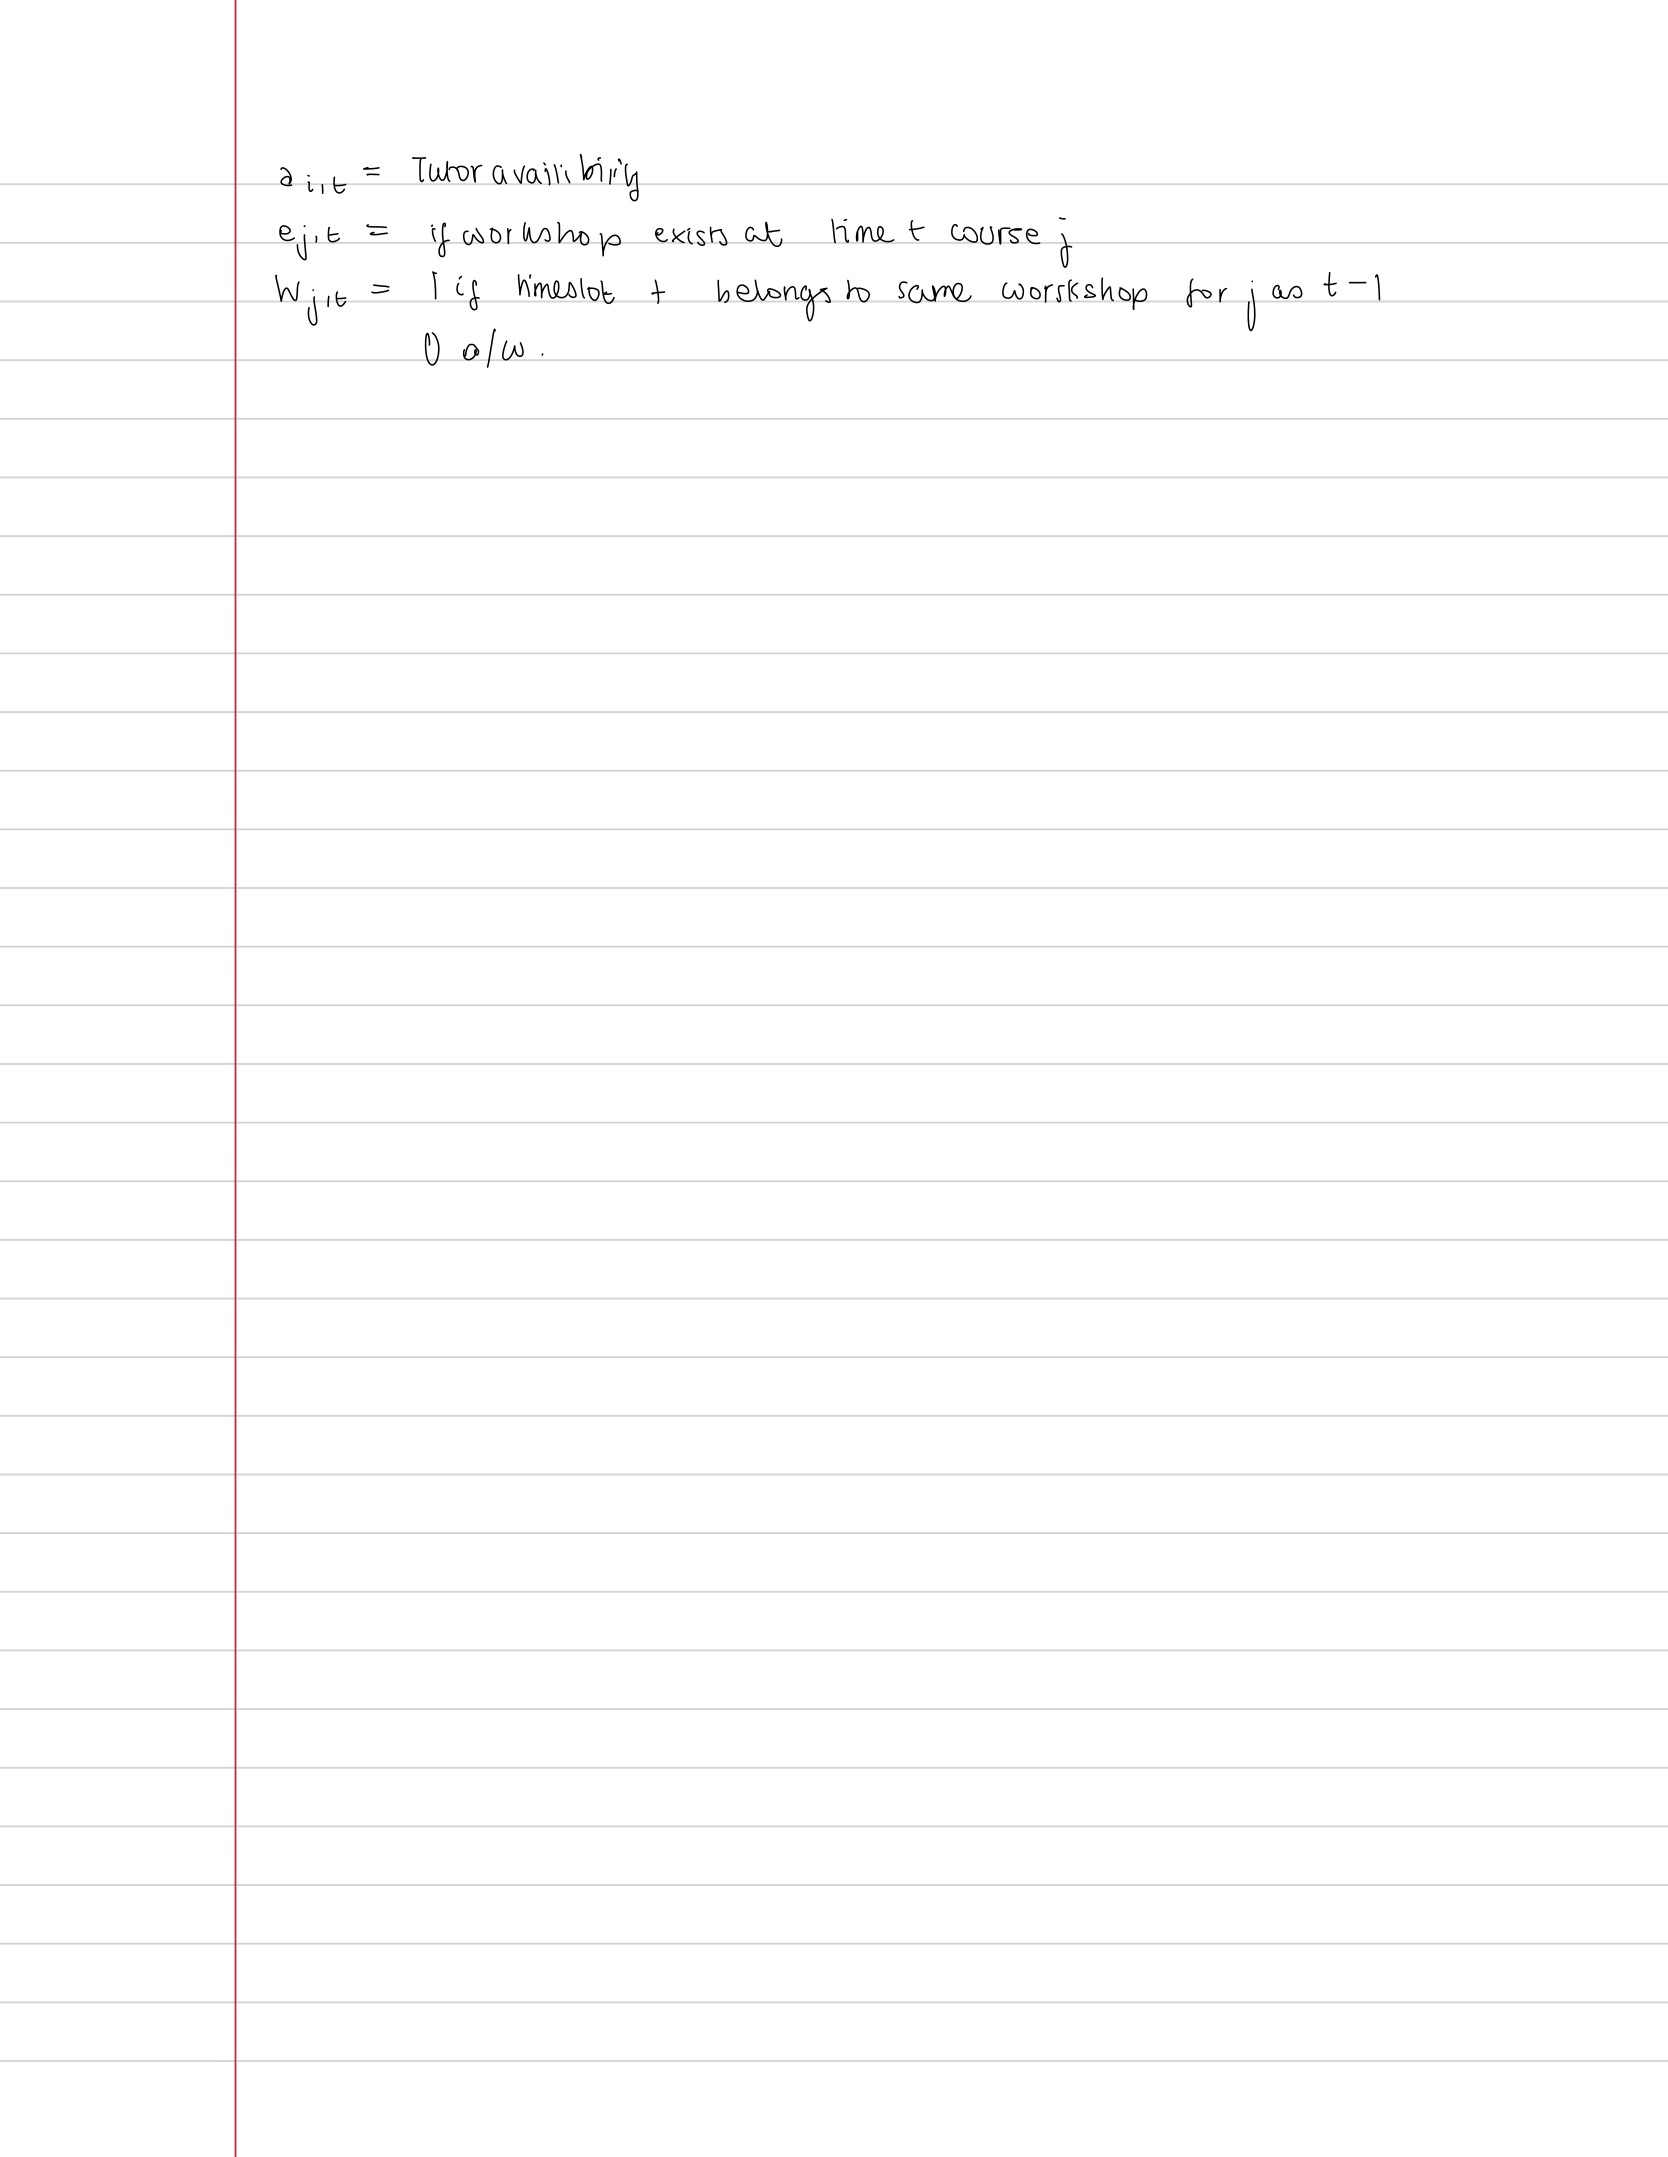 a i,t = Tutor availibiity
e j,t = if workshop exists at time t course j
W j,t = 1 if timeslot t belongs to same worskshop for j as t-1
0 o/w.